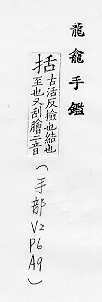 龍龕手鑑
括古活反撿也結也
至也又刮膾二音
(手部
V2
P6
A9)